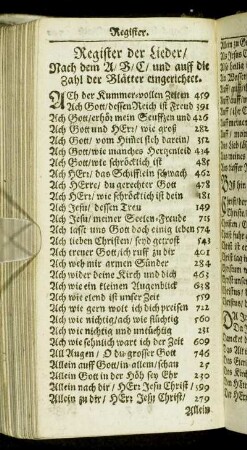 Register.
Register der Lieder/
Nach dem A/B/C/ und auff die
Zahl der Blätter eingerichtet.
ACh der Kummer-vollen Zeiten 459
Ach Gott/ dessen Reich ist Freud 391
Ach Gott/ erhör mein Seufftzen und 426
Ach Gott und HErr/ wie groß 282
Ach Gott/ vom Himel sieh darein/ 352
Ach Gott/ wie manches Hertzenleid 414
Ach Gott/ wie schröcklich ist 485
Ach HErr/ das Schifflein schwach 462
Ach HErre/ du gerechter Gott 478
Ach HErr/ wie schröcklich ist dein 181
Ach Jesu/ dessen Treu 149
Ach Jesu/ meiner Seelen-Freude 715
Ach lasse uns Gott doch einig leben 574
Ach lieben Christen/ seyd getrost 543
Ach treuer Gott/ ich ruff zu dir 401
Ach weh mir armen Sünder 284
Ach wider deine Kirch und dich 463
Ach wie ein kleinen Augenblick 638
Ach wie elend ist unser Zeit 559
Ach wie gern wolt ich dich preisen 712
Ach wie nichtig/ ach wie flüchtig 560
Ach wie nichtig und untüchtig 231
Ach wie sehnlich wart ich der Zeit 609
All Augen/ O du grosser Gott 746
Allein auff Gott/ in allem/ schau 25
Allein Gott in der Höh sey Ehr 230
Allein nach dir/ HErr Jesu Christ/ 599
Allein zu dir/ HErr Jesu Christ/ 279
Allein